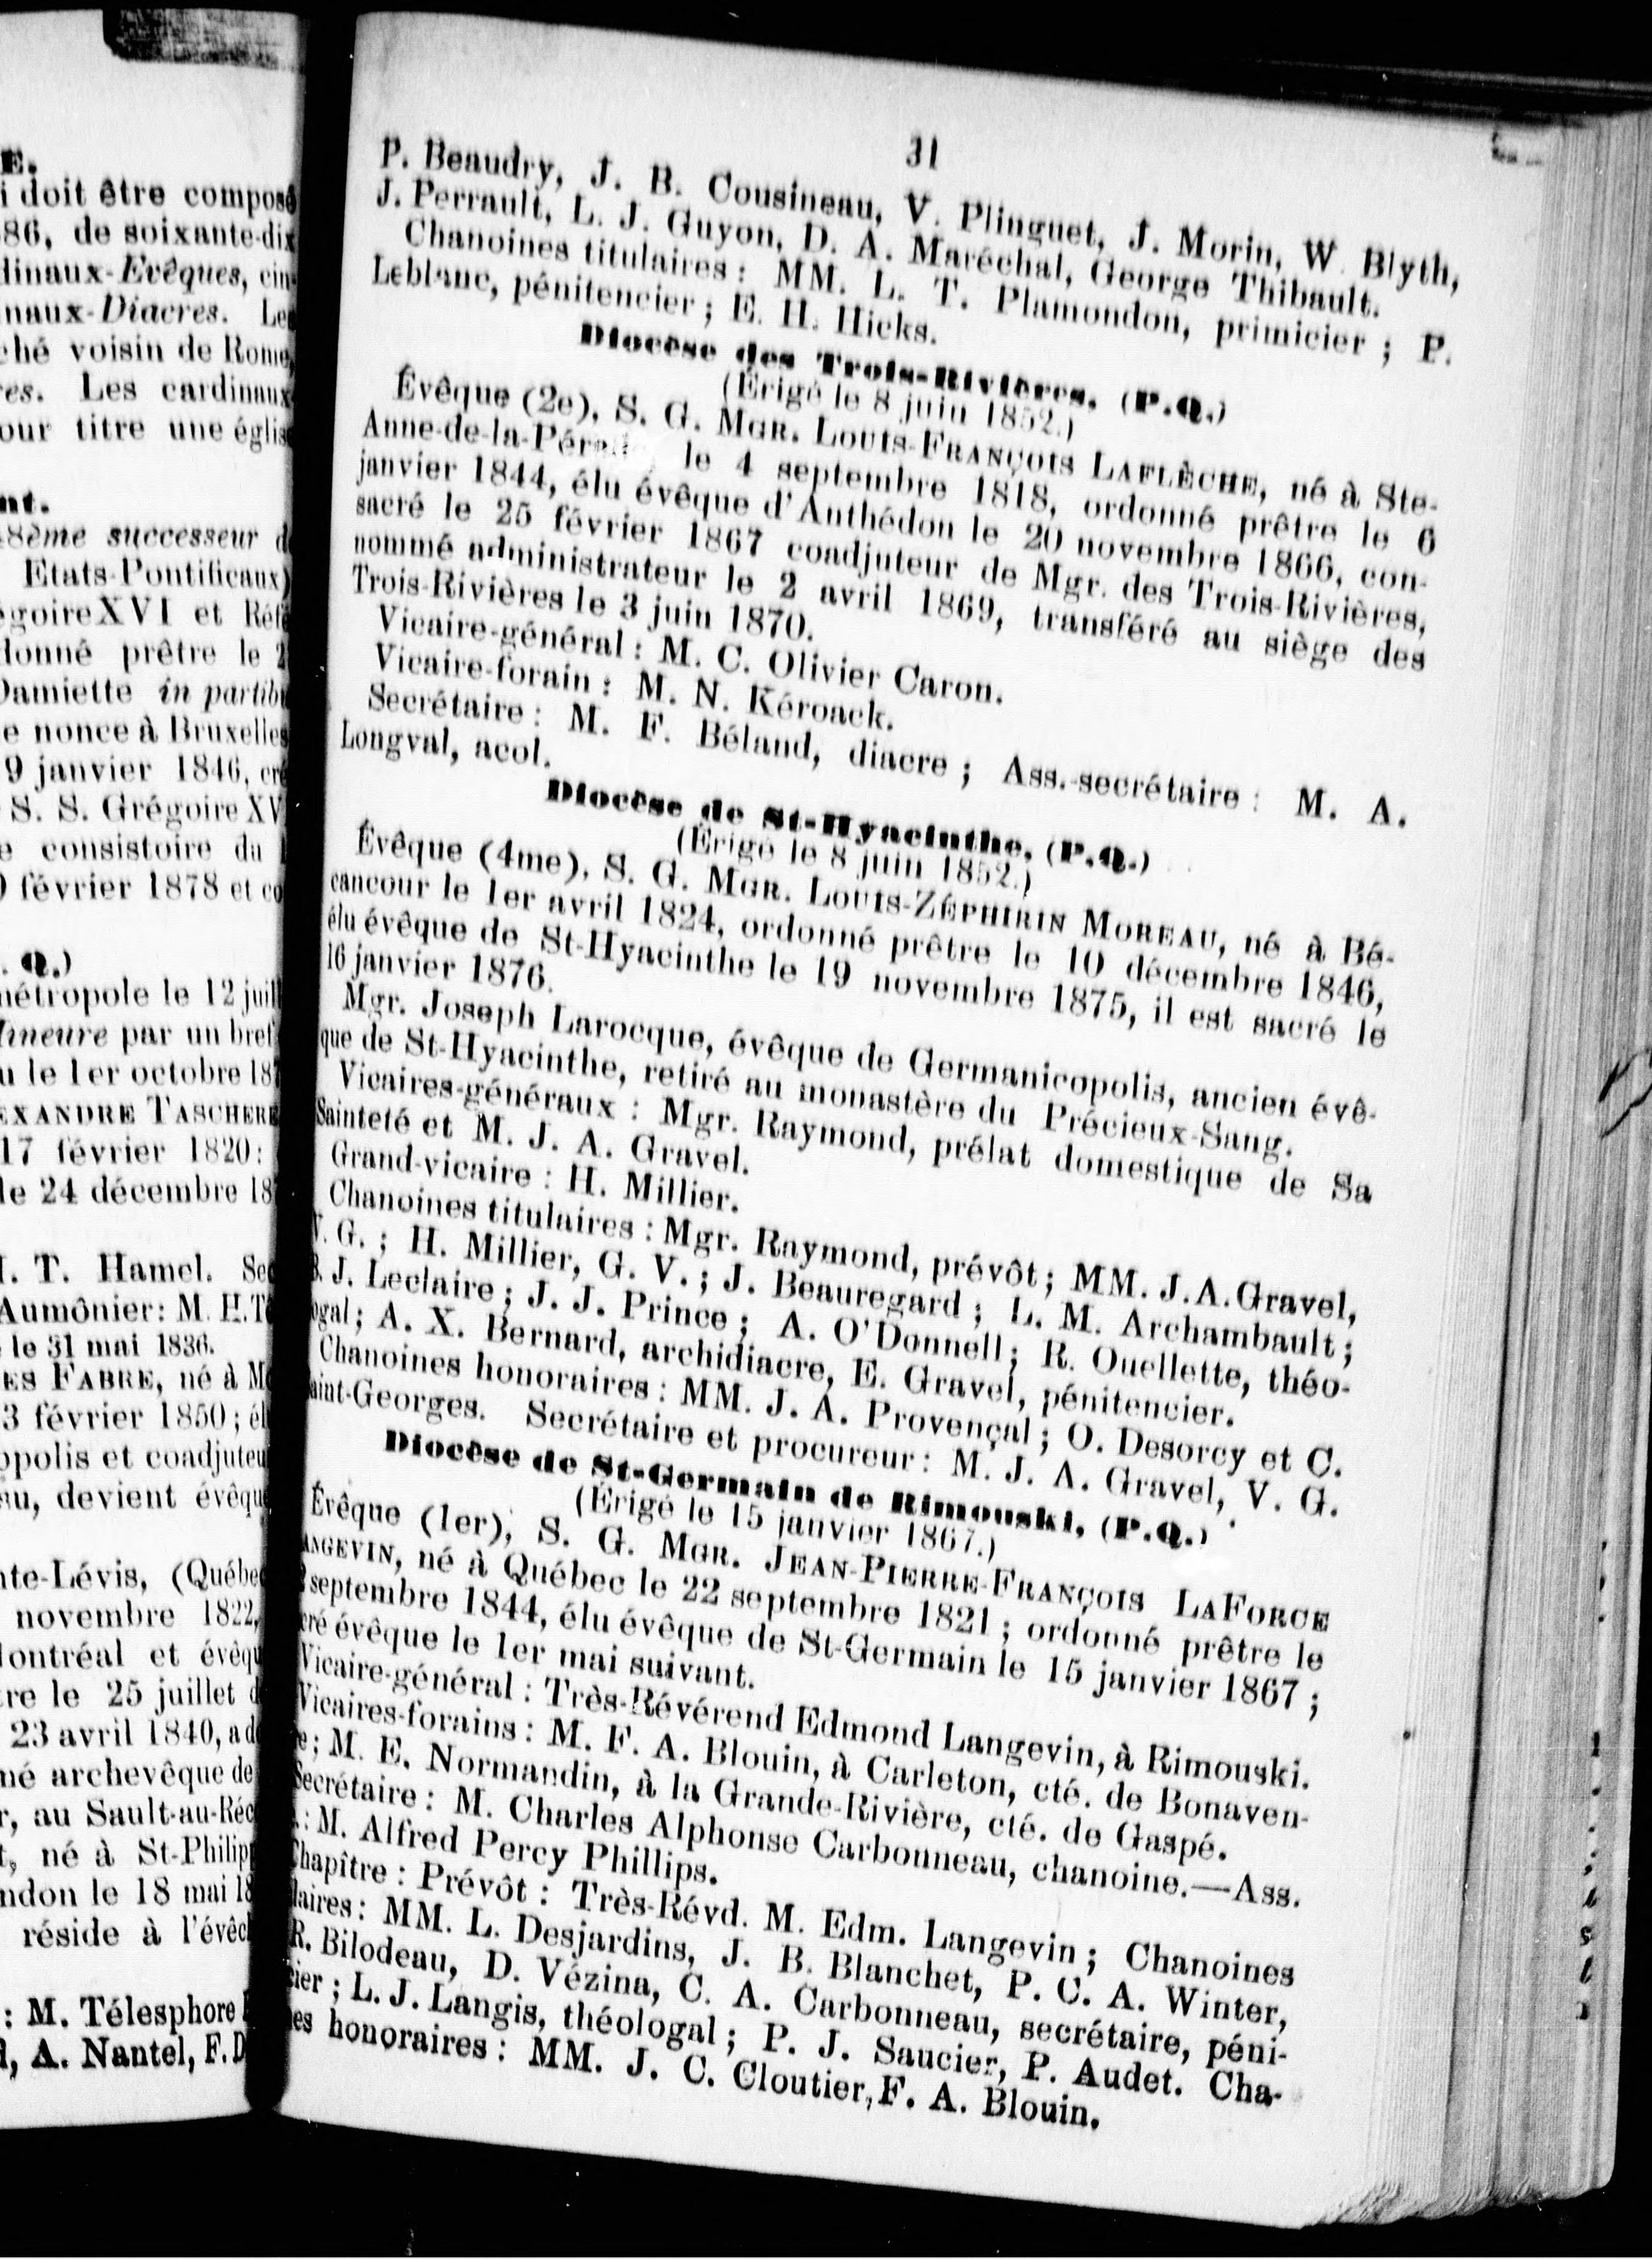 E.
i doit être composé
86, de soixante-dix
dinaux-Evêques, cin-
naux-Diacres. Les
ché voisin de Rome,
res. Les cardinaux
our titre une église
nt.
8ème successeur d
Etats-Pontificaux)
égoire XVI et
donné prêtre le 2
Damiette in partibu
e nonce à Bruxelles
9 janvier 1846, cré
S. S. Grégoire XV
e consistoire du
février 1878 et co
. Q.)
métropole le 12 juil
par un bref
u le 1er octobre 187
EXANDRE TASCHERE
17 février 1820:
le 24 décembre 18
T. Hamel. Sec
Aumônier: M. H. Tê
le 31 mai 1836.
ES FABRE, né à Mo
3 février 1850; él
opolis et coadjuteu
au, devient évêque
nte-Lévis, (Québec
novembre 1822,
Montréal et évêqu
re le 25 juillet d
23 avril 1840, a dé
mé archevêque de
r, au Sault-au-Réc
t, né à St-Philipp
ndon le 18 mai 18
réside à l'évêch
: M. Télesphore
d, A. Nantel, F. D
31
P. Beaudry, J. B. Cousineau, V. Plinguet, J. Morin, W. Blyth,
J. Perrault, L. J. Guyon, D. A. Maréchal, George Thibault.
Chanoines titulaires : MM. L. T. Plamondon, primicier ; P.
Leblanc, pénitencier ; E. H. Hicks.
Diocèse des Trois-Rivières, (P.Q.)
(Érigé le 8 juin 1852.)
Évêque (2e), S. G. MGR. LOUIS-FRANÇOIS LAFLÈCHE, né à Ste-
Anne-de-la-Pérade, le 4 septembre 1818, ordonné prêtre le 6
janvier 1844, élu évêque d'Anthédon le 20 novembre 1866, con-
sacré le 25 février 1867 coadjuteur de Mgr. des Trois-Rivières,
nommé administrateur le 2 avril 1869, transféré au siège des
Trois-Rivières le 3 juin 1870.
Vicaire-général : M. C. Olivier Caron.
Vicaire-forain : M. N. Kéroack.
Secrétaire : M. F. Béland, diacre ; Ass.-secrétaire : M. A.
Longval, acol.
Diocèse de St-Hyacinthe, (P.Q.)
(Érigé le 8 juin 1852.)
Évêque (4me), S. G. MGR. LOUIS-ZÉPHIRIN MOREAU, né à Bé-
cancour le 1er avril 1824, ordonné prêtre le 10 décembre 1846,
élu évêque de St-Hyacinthe le 19 novembre 1875, il est sacré le
16 janvier 1876.
Mgr. Joseph Larocque, évêque de Germanicopolis, ancien évê-
que de St-Hyacinthe, retiré au monastère du Précieux-Sang.
Vicaires-généraux : Mgr. Raymond, prélat domestique de Sa
Sainteté et M. J. A. Gravel.
Grand-vicaire : H. Millier.
Chanoines titulaires : Mgr. Raymond, prévôt ; MM. J. A. Gravel,
V. G. ; H. Millier, G. V. ; J. Beauregard ; L. M. Archambault ;
J. Leclaire ; J. J. Prince ; A. O'Donnell ; R. Ouellette, théo-
ogal ; A. X. Bernard, archidiacre, E. Gravel, pénitencier.
Chanoines honoraires : MM. J. A. Provençal ; O. Desorcy et C.
aint-Georges. Secrétaire et procureur : M. J. A. Gravel, V. G.
Diocèse de St-Germain de Rimouski, (P.Q.)
(Érigé le 15 janvier 1867.)
Évêque (1er), S. G. MGR. JEAN-PIERRE-FRANÇOIS LAFORCE
ANGEVIN, né à Québec le 22 septembre 1821 ; ordonné prêtre le
septembre 1844, élu évêque de St-Germain le 15 janvier 1867 ;
cré évêque le 1er mai suivant.
Vicaire-général : Très-Révérend Edmond Langevin, à Rimouski.
Vicaires-forains : M. F. A. Blouin, à Carleton, cté. de Bonaven-
e ; M. E. Normandin, à la Grande-Rivière, cté. de Gaspé.
Secrétaire : M. Charles Alphonse Carbonneau, chanoine.—Ass.
: M. Alfred Percy Phillips.
Chapître : Prévôt : Très-Révd. M. Edm. Langevin ; Chanoines
laires : MM. L. Desjardins, J. B. Blanchet, P. C. A. Winter,
R. Bilodeau, D. Vézina, C. A. Carbonneau, secrétaire, péni-
cier ; L. J. Langis, théologal ; P. J. Saucier, P. Audet. Cha-
es honoraires : MM. J. C. Cloutier, F. A. Blouin.